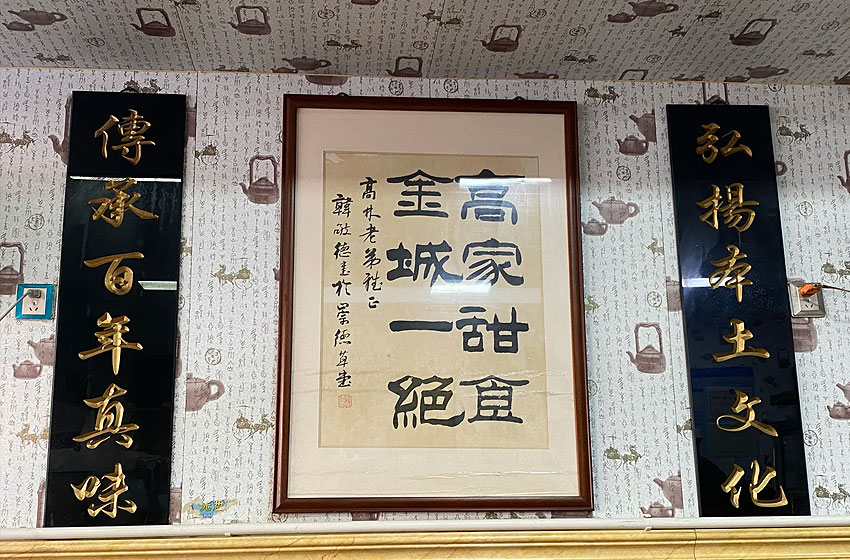 弘揚本土文化
高家甜食
金城一絕
高林老弟雅正
韓德書於崇德草堂
傳承百年真味